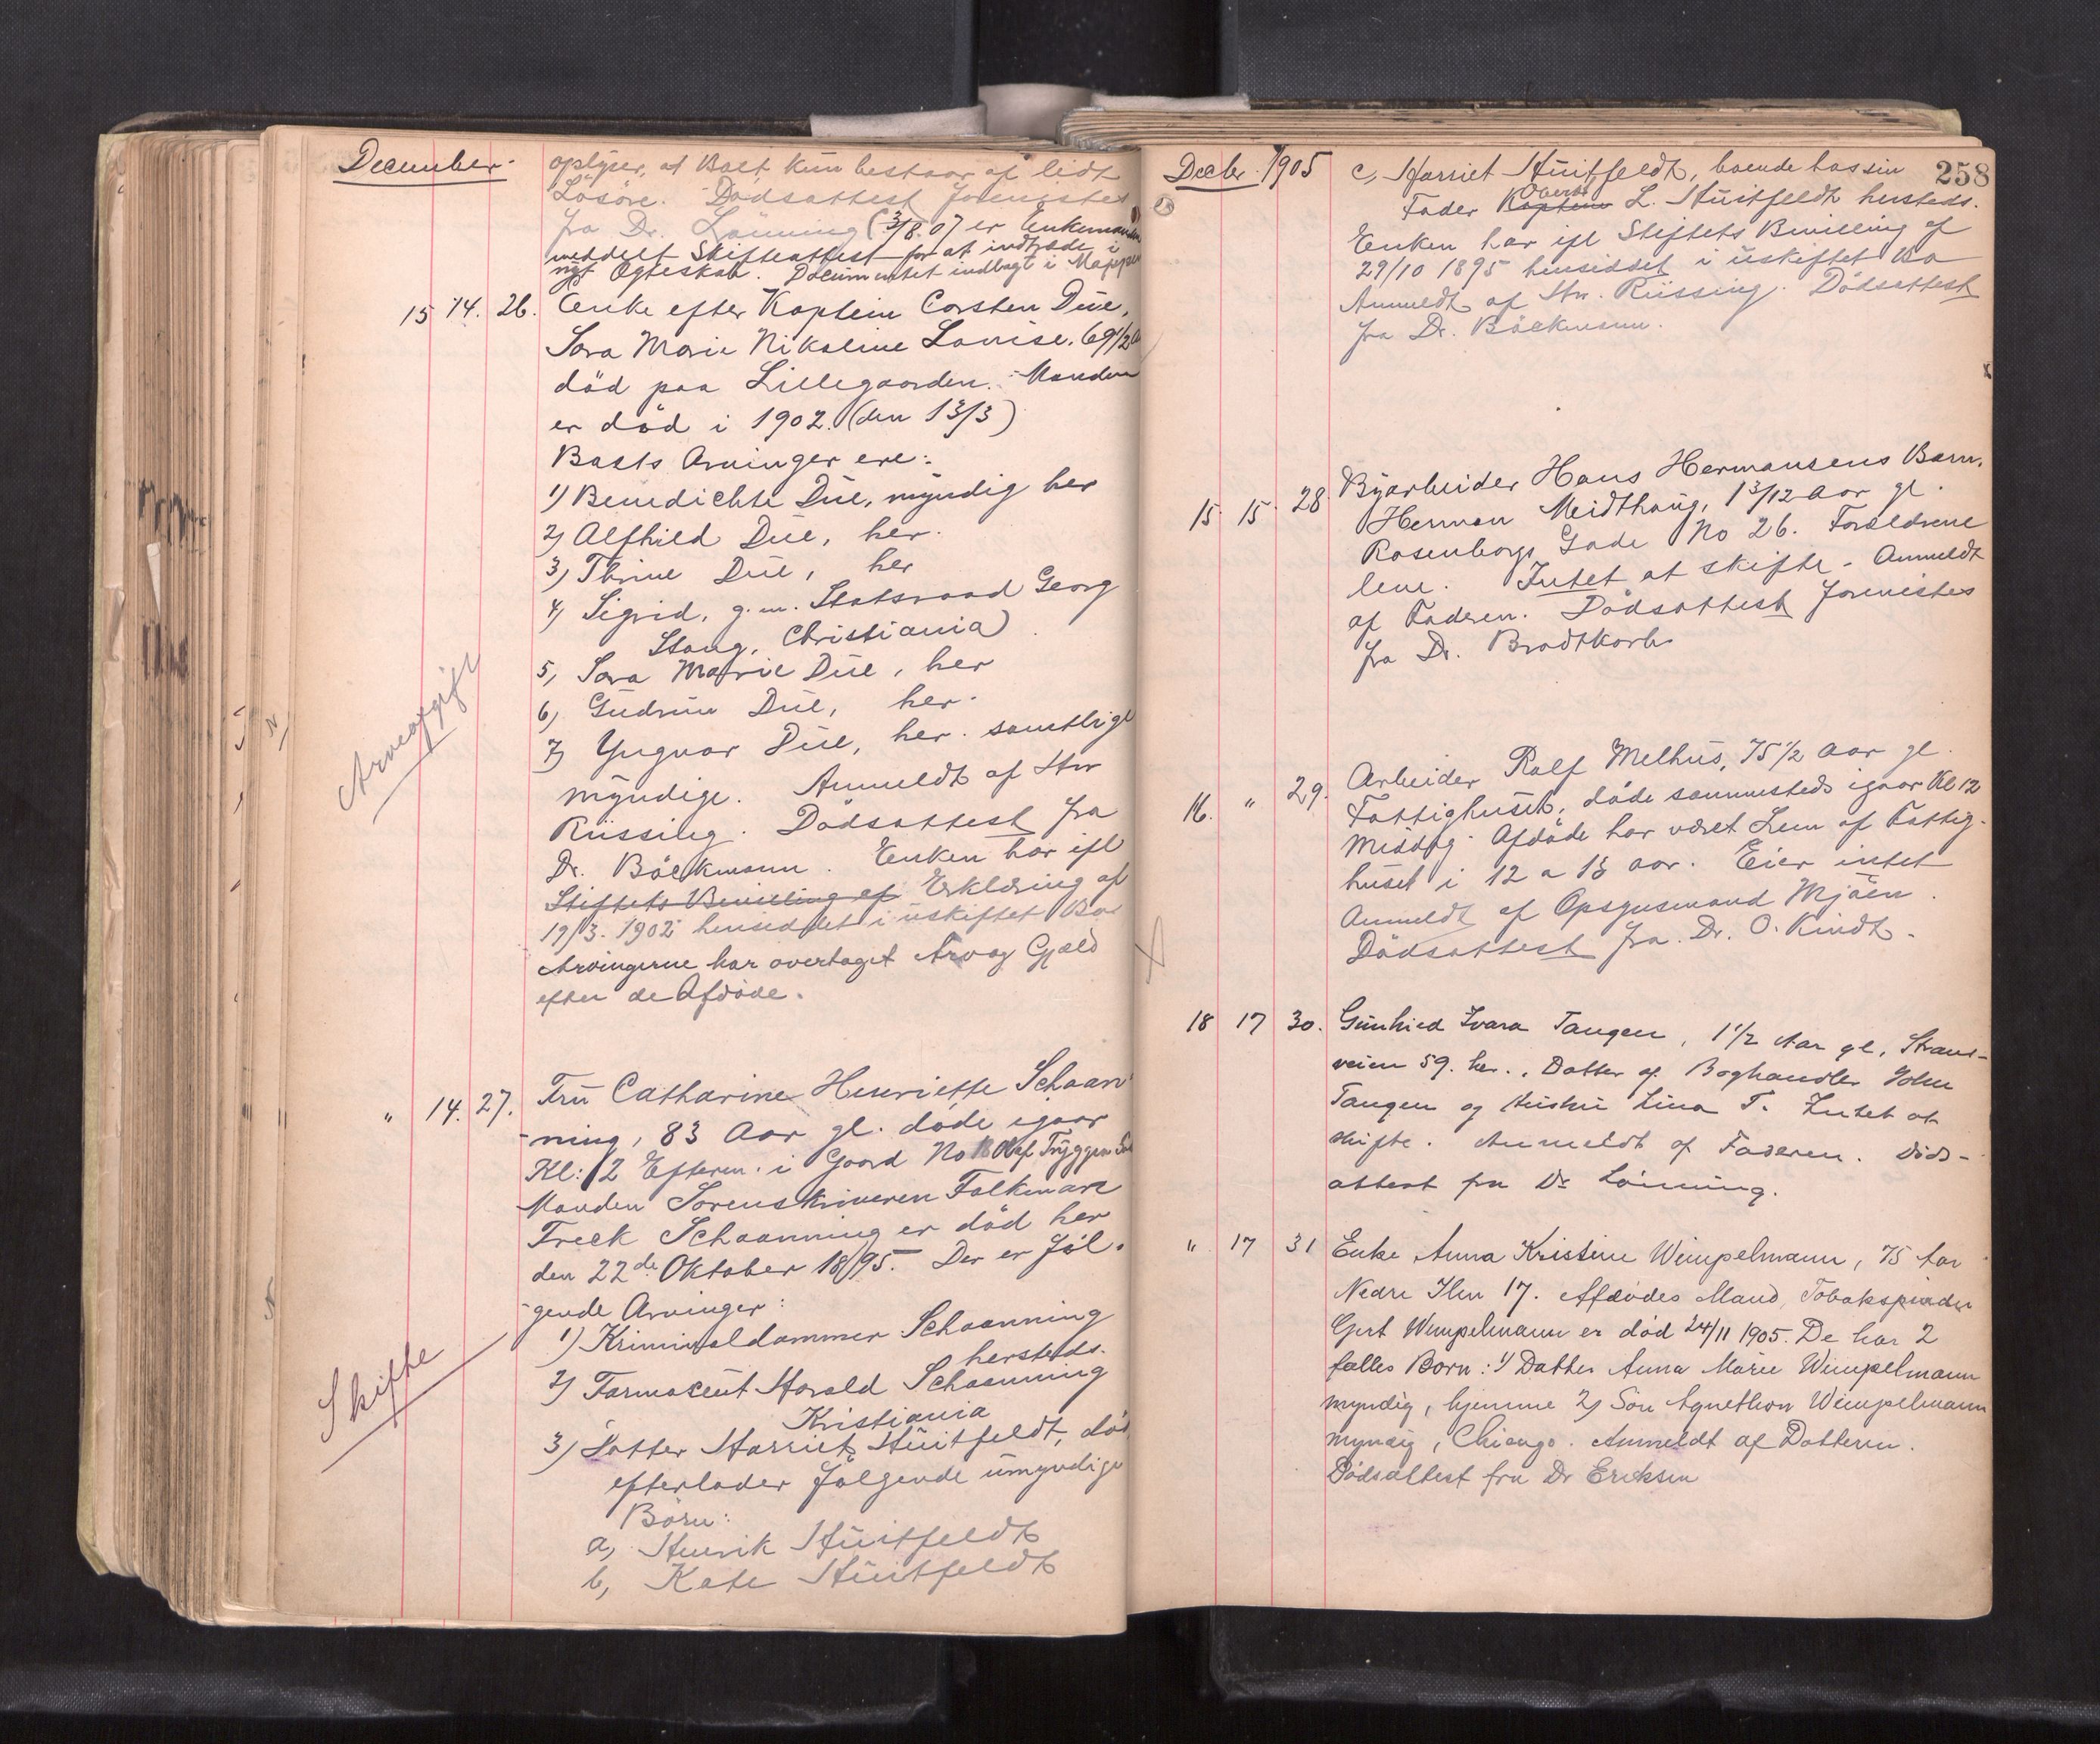 December.
oplyser, at Boet kun bestaar af lidt
Løsøre. Dødsattest forevistes
fra Dr. Lönning (3/8.07 er Enkemanden
meddelt Skifteattest for at indtræde i
nyt Ægteskab. Documentet indlagt i Mappen
15 14. 26. Enke efter Kaptein Carsten Due,
Sara Marie Nikoline Lovise. 69 1/2 a
död paa Lillegaarden. Manden
er död i 1902. (den 13/3)
Boets Arvinger ere:
1) Benedichte Due, myndig her
2) Alfhild Due, her.
3) Thrine Due, her
4) Sigrid, g. m. Statsraad Georg
Stang, Christiania
5, Sara Marie Due, her
6) Gudrun Due, her.
7) Yngvar Due, her. samtlige
myndige. Anmeldt af Hr
Riissing. Dødsattest fra
Dr. Böckmann. Enken har ifl
Stiftets Bevilling af Erklæring af
19/3. 1902 hensiddet i uskiftet Bo
Arvingerne har overtaget Arv og Gjæld
efter de Afdøde.
Arveafgift
" 14. 27. Fru Catharine Henriette Schaan-
-ning, 83 Aar gl. døde igaar
Kl: 12 Efterm. i Gaard No Olaf Tryggvens Gd
Manden Sorenskriveren Falkmar
Freck Schaanning er død her
den 22de Oktober 1895. Der er føl-
-gende Arvinger:
1) Kriminaldommer Schaanning
hersteds.
2) Farmaceut Harald Schaanning
Kristiania
3) Datter Harriet Huitfeldt, død,
efterlader følgende umyndige
Börn:
a, Henrik Huitfeldt
b, Kate Huitfeldt
Skifte
Decbr. 1905
258
c, Harriet Huitfeldt, boende hos sin
Oberst
Fader Kaptein L. Huitfeldt hersteds.
Enken har ifl Stiftets Bevilling af
29/10 1895 hensiddet i uskiftet Bo
Anmeldt af Hr. Riissing. Dødsattest
fra Dr. Böckmann.
15 15 28 Byarbeider Hans Hermansens Barn,
Herman Meidthaug, 1 3/12 Aar gl.
Rosenborgs Gade No 26. Forældrene
leve. Intet at skifte. Anmeldt
af Faderen. Dødsattest forevistes
fra Dr. Bradtkorb
16. " 29. Arbeider Ralf Melhus, 75 1/2 Aar gl.
Fattighuset, døde sammesteds igaar Kl 12
Middag. Afdøde har været Lem af Fattig-
huset i 12 a 13 aar. Eier intet
Anmeldt af Opsynsmand Mjøen.
Dødsattest fra Dr. O. Kindt.
18 17 30. Gunhild Ivara Tangen, 1 1/2 Aar gl, Strand-
veien 59. her., Datter af Boghandler John
Tangen og Hustru Lina T. Intet at
skifte. Anmeldt af Faderen. Døds-
attest fra Dr Lönning.
" 17 31 Enke Anna Kristine Wimpelmann, 75 Aar
Nedre Ilen 17. Afdødes Mand, Tobakspinder
Gert Wimpelmann er død 24/11 1905. De har 2
fælles Børn: 1/ Datter Anna Marie Wimpelmann
myndig, hjemme 2) Søn Agnethon Wimpelmann
myndig, Chicago. Anmeldt af Datteren.
Dødsattest fra Dr Eriksen